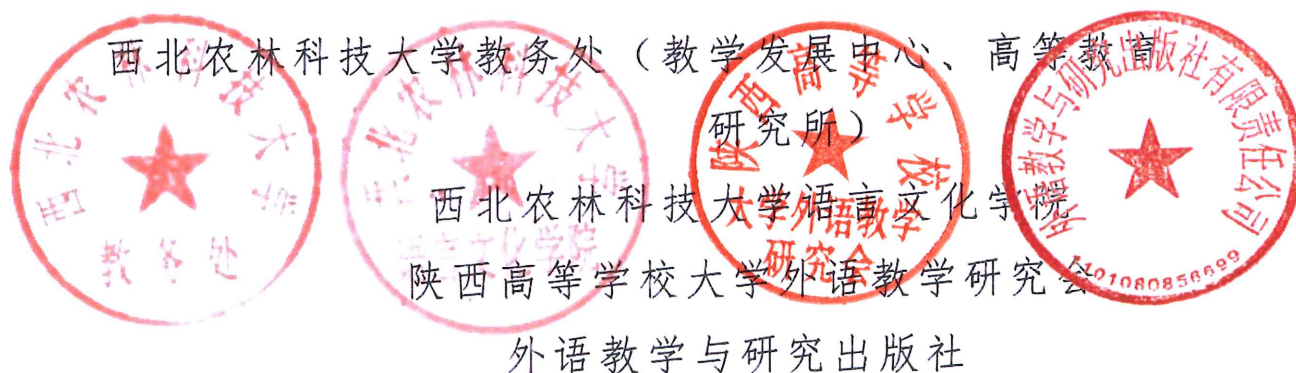 西北农林科技大学教务处（教学发展中心、高等教育
研究所）
西北农林科技大学语言文化学院
陕西高等学校大学外语教学研究会
外语教学与研究出版社
西北农林科技大学
教务处
西北农林科技大学
语言文化学院
陕西高等学校
大学外语教学
研究会
外语教学与研究出版社有限责任公司